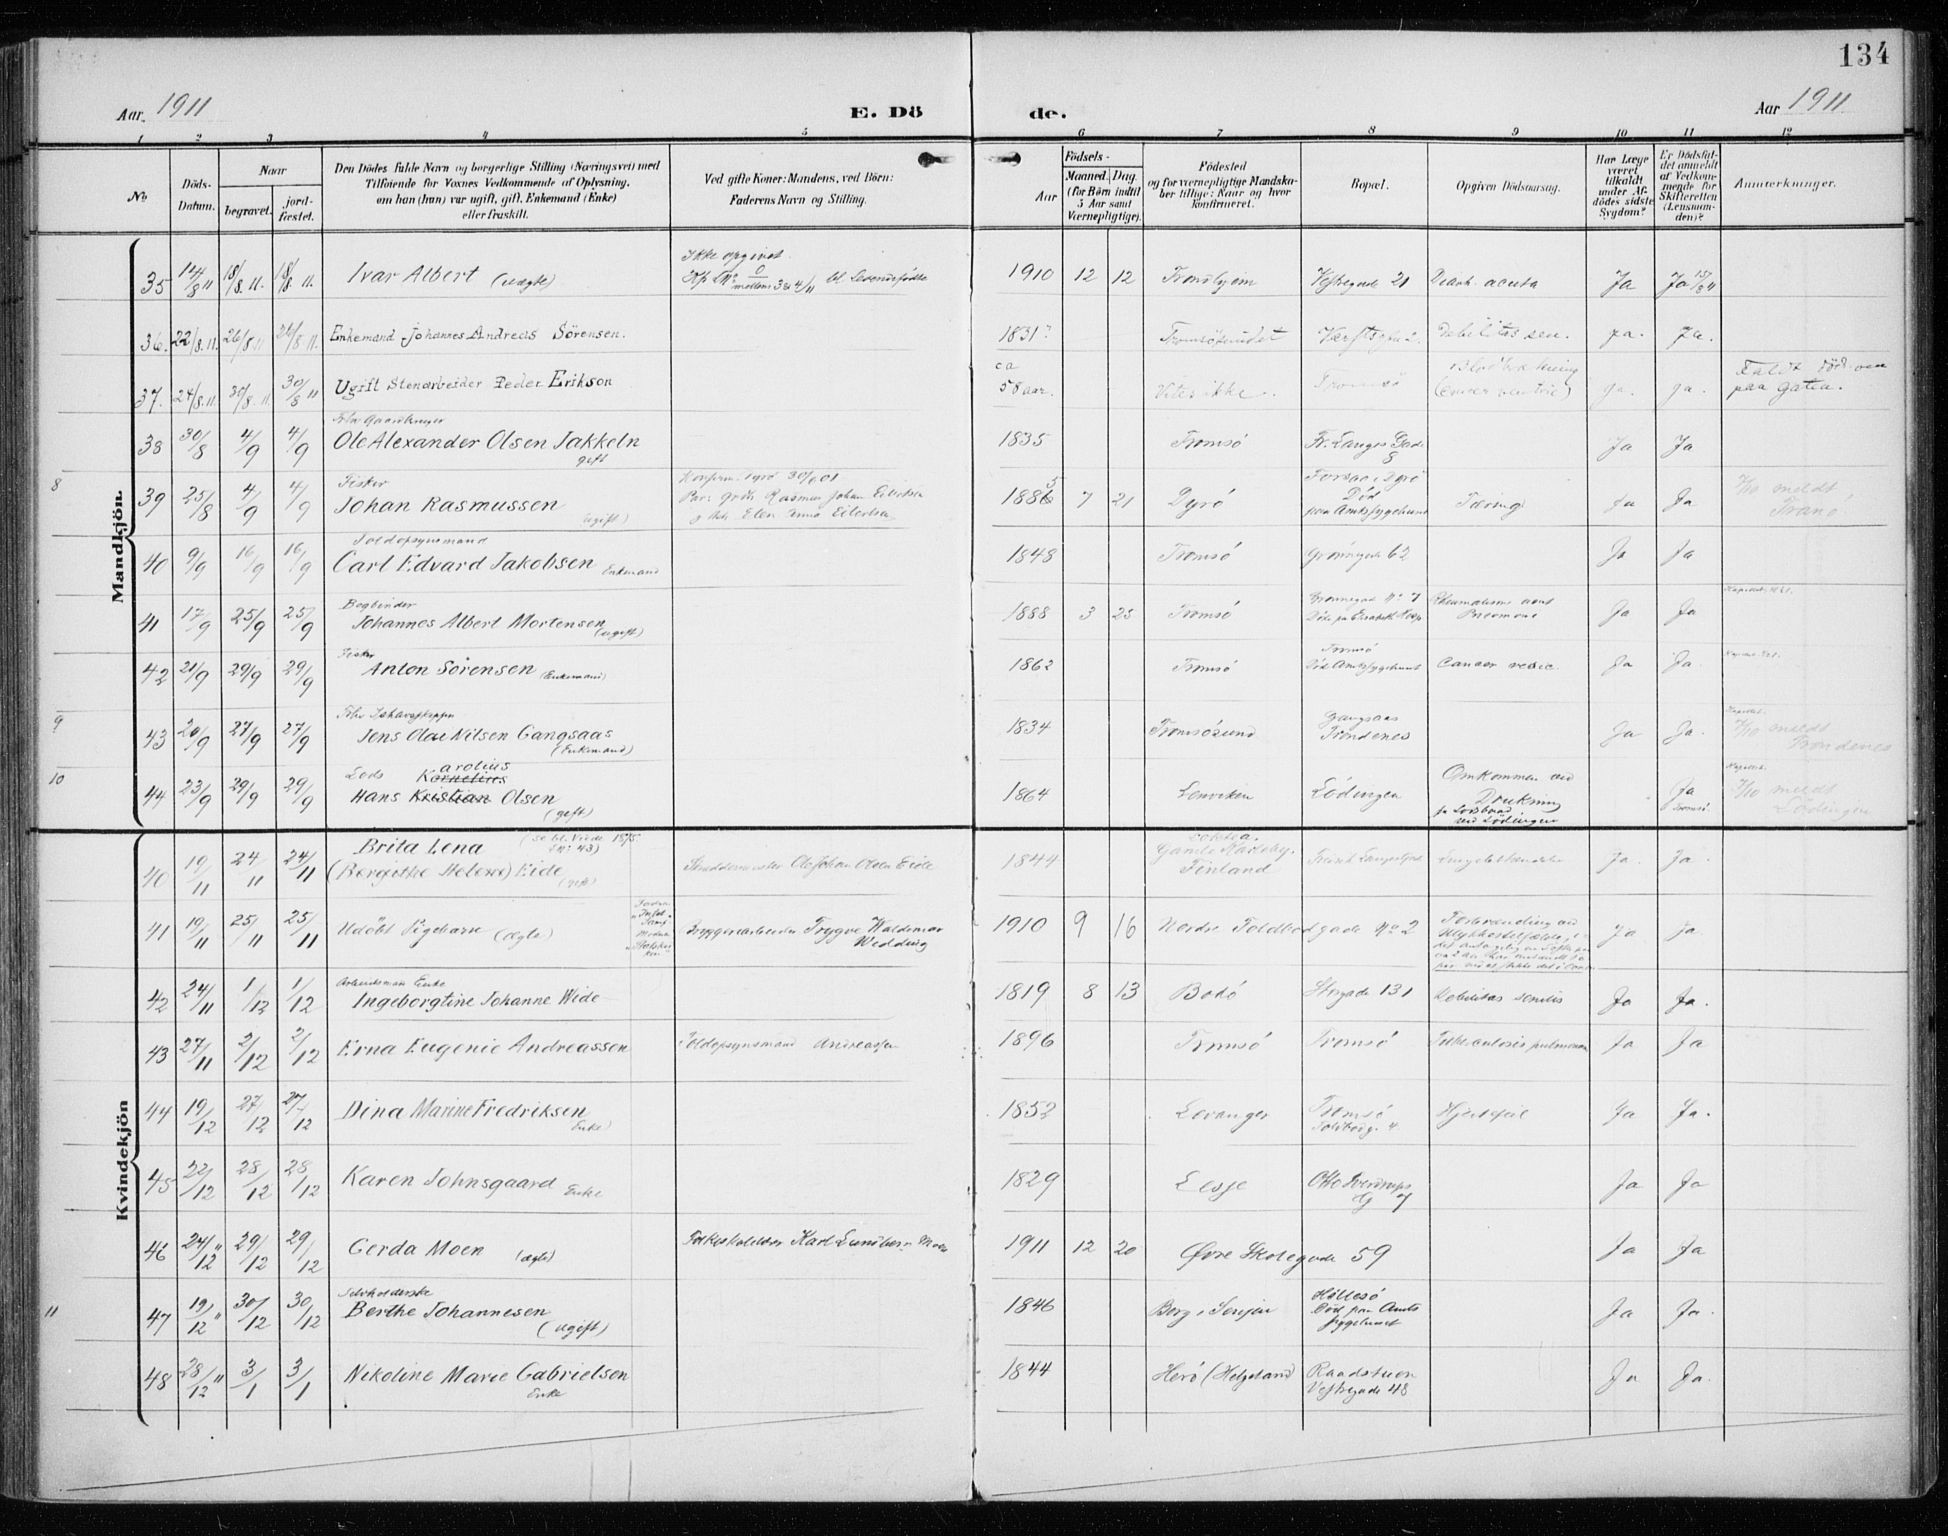 134
Aar 1911
E. Dö de.
Aar 1911
1 2 3 4 5 6 7 8 9 10 11 12
No.
Döds-Datum.
Naar
begravet.
jord-fæstet.
Den Dödes fulde Navn og borgerlige Stilling (Næringsvei) med
Tilföiende for Voxnes Vedkommende af Oplysning,
om han (hun) var ugift, gift, Enkemand (Enke)
eller fraskilt.
Ved gifte Koner: Mandens, ved Börn:
Faderens Navn og Stilling.
Födsels-
Aar
Maaned. Dag.
(for Börn indtil
5 Aar samt
Værnepligtige).
Födested
og for værnepligtige Mandska-
ber tillige: Naar og hvor
konfirmeret.
Bopæl.
Opgiven Dödsaarsag.
Har Læge
været
tilkaldt
under Af-
dödes sidste
Sygdom?
Er Dödsfal-
det anmeldt
af Vedkom-
mende for
Skifteretten
(Lensman-
den)?
Anmærkninger.
Mandkjön.
35 14/8 11 18/8 11. 18/8 11. Ivar Albert (uægte) Ikke opgivet. 1910 12 12 Vestregade 21 Diarh. acuta Ja Ja 15/8 11
36. 22/8 11. 26/8 11 26/8 11. Enkemand Johannes Andreas Sörensen. 1831? Tromsösundet Debilitas sen. ja. ja.
37. 24/8 11. 30/8 11 30/8 11 Ugift Stenarbeider Peder Erikson ca 58 aar. Vites ikke. Tromsö ja. ja. paa gaten.
38 30/8 4/9 4/9 Ole Alexander Olsen Jakkeln gift 1835 Tromsö Fr. Langes Gade 8 Ja Ja
8 39 25/8 4/9 4/9 Fisker Johan Rasmussen (ugift) 1886 7 21 Dyrö Död paa Amtssygehuset Tæring Ja Ja meldt Tranö
40 9/9 16/9 16/9 Toldopsynsmand Carl Edvard Jakobsen Enkemand 1848 Tromsö Grönnegade 62 Ja Ja
41 17/9 25/9 25/9 Bogbinder Johannes Albert Mortensen (ugift) 1888 3 25 Tromsö Ja Ja
42 21/9 29/9 29/9 Fisker Anton Sörensen (Enkemand) 1862 Tromsö Tromsö Död Amtssygehuset Cancer vesic. Ja Ja.
9 43 20/9 27/9 27/9 Jens Olai Nilsen Gangsaas (Enkemand) 1834 Tromsösund Gangsaas Trondenes Ja Ja. meldt Trondenes
10 44 23/9 29/9 29/9 Lods Karolius Kornelius Hans Kristian Olsen (gift) 1864 Lenviken Lödingen Omkommen ved Drukning ved Lödingen Ja Tromsö meldt Lödingen
Kvindekjön
40 19/11 24/11 24/11 Brita Lena (Birgithe Helene) Eide (gift) Ole Johan Olsen Eide 1844 Gamle Karleby, Finland Ja. Ja.
41 19/11 25/11 25/11 Udöbt Pigebarn (ægte) Bryggearbeider Trygve Waldemar Wedding 1910 9 16 Nordre Toldbodgade No 2 Ja ja.
42 24/11 1/12 1/12 Arbeidsmans Enke Ingeborgtine Johanne Wide 1819 8 13 Bodö Storgade 131 Debilitas senilis Ja Ja.
43 27/11 2/12 2/12 Erna Eugenie Andreassen Toldopsynsmand Andreassen 1896 Tromsö Tromsö Tuberculosis pulmonum Ja Ja
44 19/12 27/12 27/12 Dina Marine Fredriksen Enke) 1852 Levanger Tromsö Toldbodg. 4 Hjertefeil Ja Ja.
45 22/12 28/12 28/12 Karen Johnsgaard Enke 1829 Lesje Otto Sverdrups G 7 Ja Ja
46 24/12 " 29/12 29/12 Gerda Moen (ægte) Karl Lundberg Moen 1911 12 20 Øvre Skolegade 59 Ja Ja
11 47 19/12 " 30/12 30/12 Berthe Johannesen (ugift) 1846 Berg i Senjen Hillesö Död paa Amtssygehuset Ja Ja.
48 28/12 " 3/1 3/1 Nikoline Marie Gabrielsen Enke 1844 Herö (Helgeland Raadstuen Vestregade 48 Ja Ja.